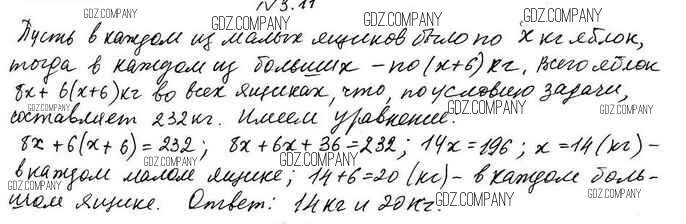 N 3.11
Пусть в каждом из малых ящиков было по x кг яблок,
тогда в каждом из больших – по (x+6) кг. Всего яблок
8x + 6(x+6) кг во всех ящиках, что, по условию задачи,
составляет 232 кг. Имеем уравнение:
8x + 6(x + 6) = 232; 8x + 6x + 36 = 232; 14x = 196; x = 14 (кг) –
в каждом малом ящике; 14 + 6 = 20 (кг) – в каждом боль-
шом ящике. Ответ: 14 кг и 20 кг.
GDZ.COMPANY
GDZ.COMPANY
GDZ.COMPANY
GDZ.COMPANY
GDZ.COMPANY
GDZ.COMPANY
GDZ.COMPANY
GDZ.COMPANY
GDZ.COMPANY
GDZ.COMPANY
GDZ.COMPANY
GDZ.COMPANY
GDZ.COMPANY